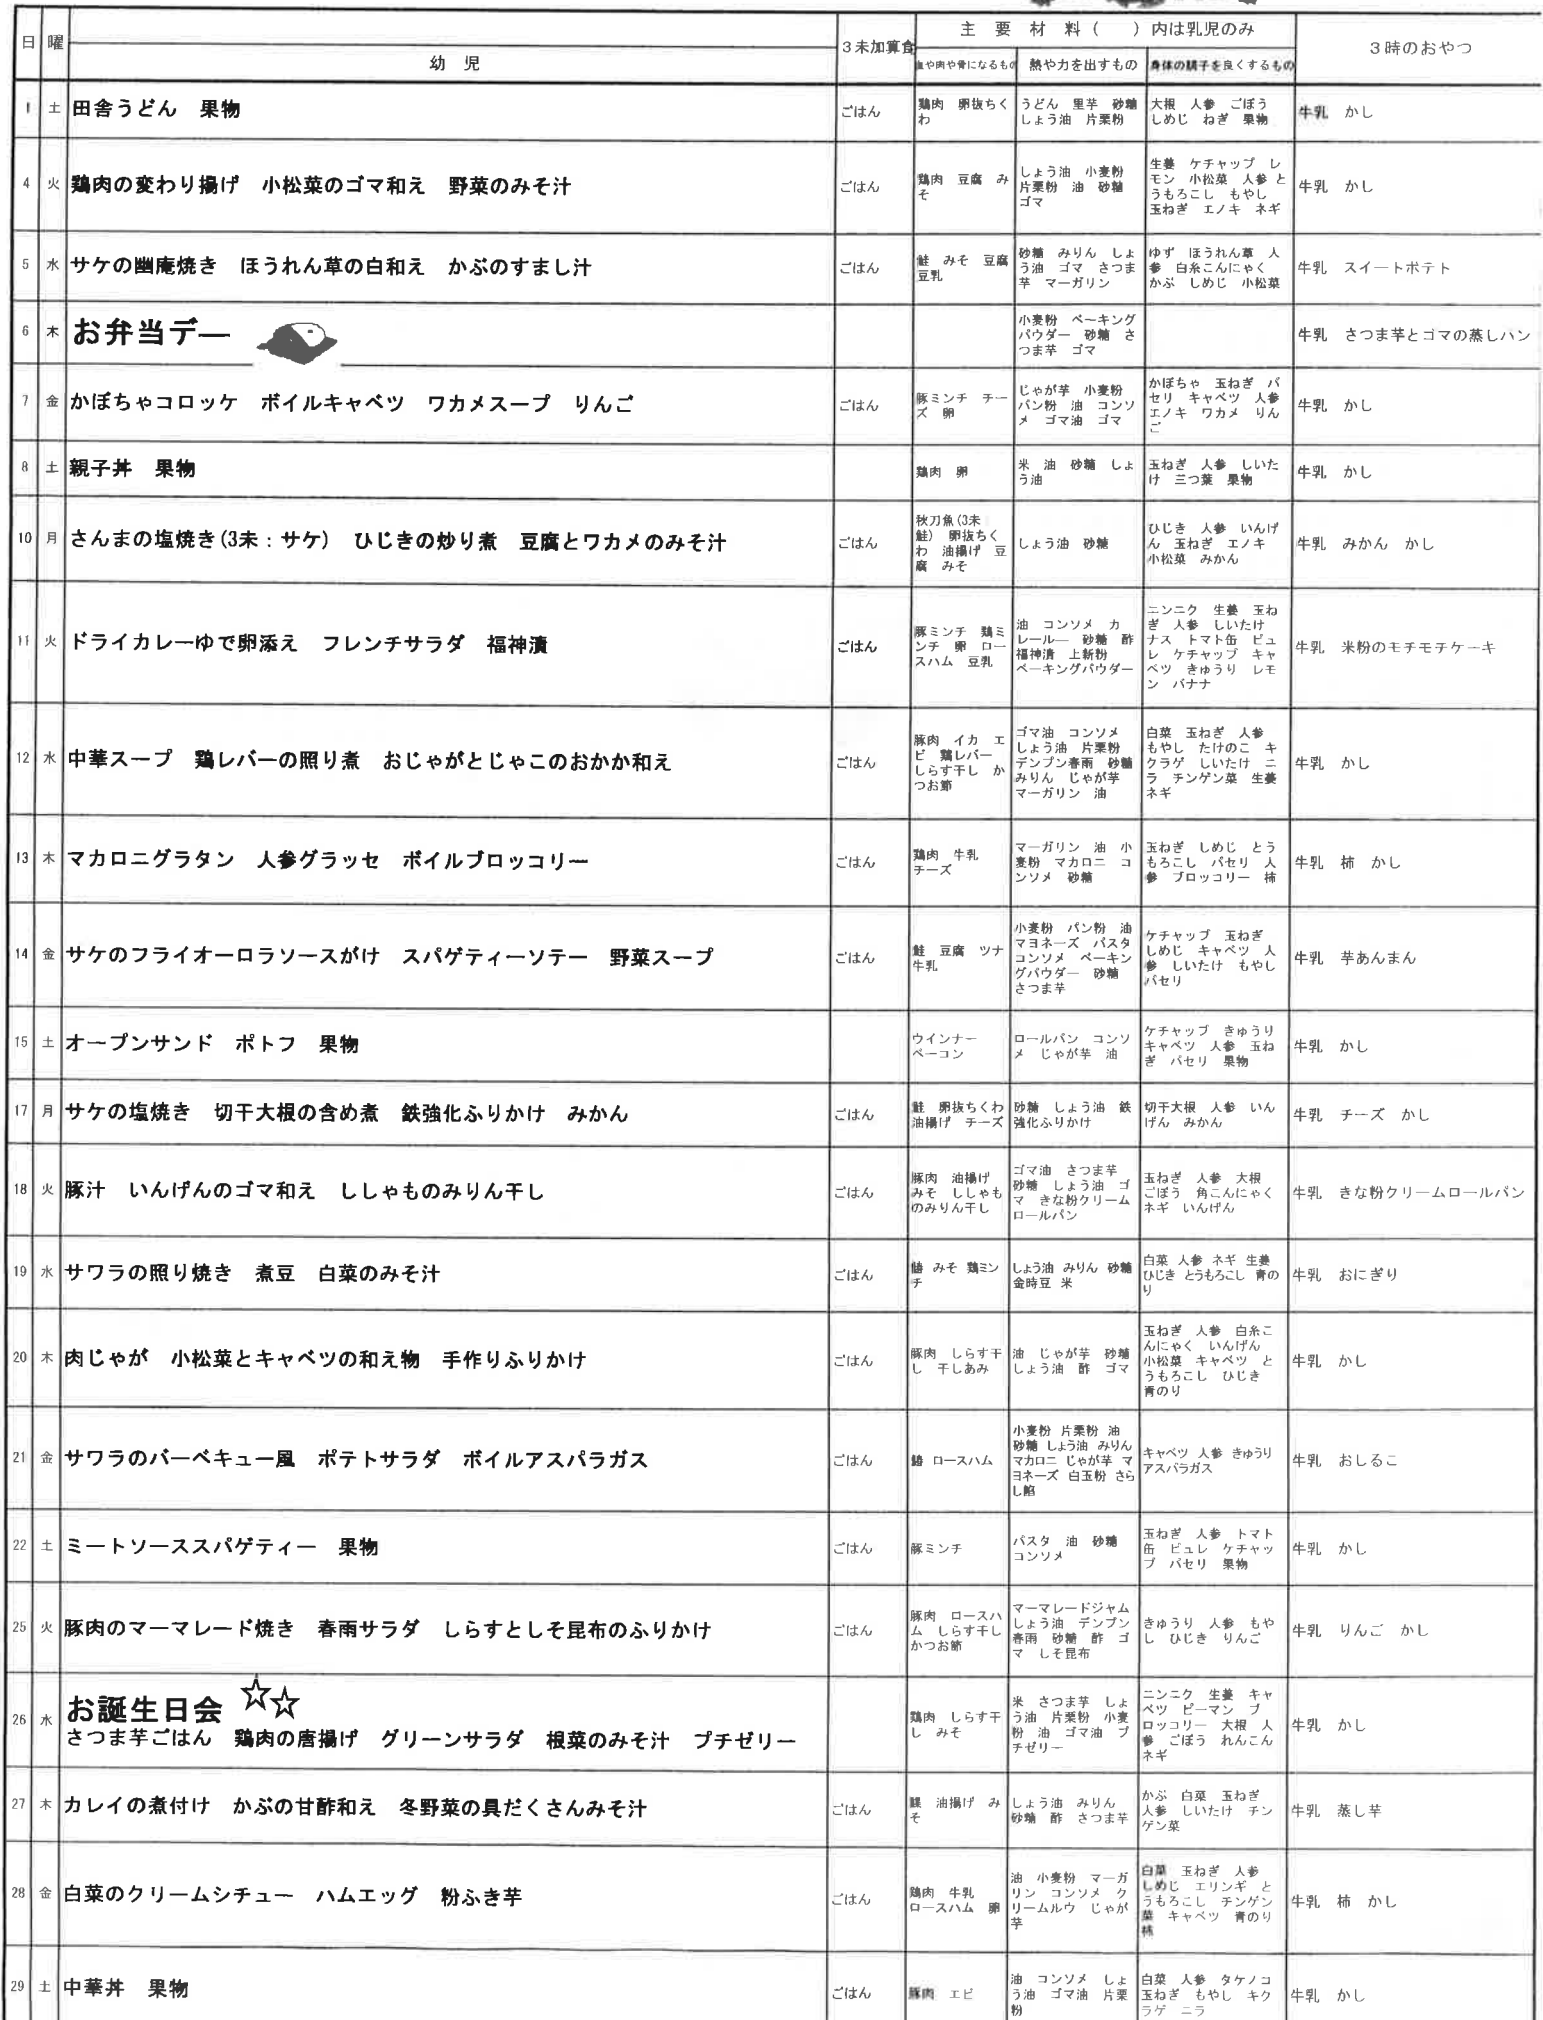 日 曜 幼 児 3未加算食 主 要 材 料 ( ) 内は乳児のみ 3時のおやつ
血や肉や骨になるもの 熱や力を出すもの 身体の調子を良くするもの
1 土 田舎うどん 果物 ごはん
鶏肉 卵抜ちく
わ
うどん 里芋 砂糖
しょう油 片栗粉
大根 人参 ごぼう
しめじ ねぎ 果物
牛乳 かし
4 火 鶏肉の変わり揚げ 小松菜のゴマ和え 野菜のみそ汁 ごはん
鶏肉 豆腐 み
そ
しょう油 小麦粉
片栗粉 油 砂糖
ゴマ
生姜 ケチャップ レ
モン 小松菜 人参 と
うもろこし もやし
玉ねぎ エノキ ネギ
牛乳 かし
5 水 サケの幽庵焼き ほうれん草の白和え かぶのすまし汁 ごはん
鮭 みそ 豆腐
豆乳
砂糖 みりん しょ
う油 ゴマ さつま
芋 マーガリン
ゆず ほうれん草 人
参 白糸こんにゃく
かぶ しめじ 小松菜
牛乳 スイートポテト
6 木 お弁当デー
小麦粉 ベーキング
パウダー 砂糖 さ
つま芋 ゴマ
牛乳 さつま芋とゴマの蒸しパン
7 金 かぼちゃコロッケ ボイルキャベツ ワカメスープ りんご ごはん
豚ミンチ チー
ズ 卵
じゃが芋 小麦粉
パン粉 油 コンソ
メ ゴマ油 ゴマ
かぼちゃ 玉ねぎ パ
セリ キャベツ 人参
エノキ ワカメ りん
ご
牛乳 かし
8 土 親子丼 果物
鶏肉 卵
米 油 砂糖 しょ
う油
玉ねぎ 人参 しいた
け 三つ葉 果物
牛乳 かし
10 月 さんまの塩焼き(3未:サケ) ひじきの炒り煮 豆腐とワカメのみそ汁 ごはん
秋刀魚(3未
鮭) 卵抜ちく
わ 油揚げ 豆
腐 みそ
しょう油 砂糖
ひじき 人参 いんげ
ん 玉ねぎ エノキ
小松菜 みかん
牛乳 みかん かし
11 火 ドライカレーゆで卵添え フレンチサラダ 福神漬 ごはん
豚ミンチ 鶏ミ
ンチ 卵 ロー
スハム 豆乳
油 コンソメ カ
レールー 砂糖 酢
福神漬 上新粉
ベーキングパウダー
ニンニク 生姜 玉ね
ぎ 人参 しいたけ
ナス トマト缶 ピュ
レ ケチャップ キャ
ベツ きゅうり レモ
ン バナナ
牛乳 米粉のモチモチケーキ
12 水 中華スープ 鶏レバーの照り煮 おじゃがとじゃこのおかか和え ごはん
豚肉 イカ エ
ビ 鶏レバー
しらす干し か
つお節
ゴマ油 コンソメ
しょう油 片栗粉
デンプン春雨 砂糖
みりん じゃが芋
マーガリン 油
白菜 玉ねぎ 人参
もやし たけのこ キ
クラゲ しいたけ ニ
ラ チンゲン菜 生姜
ネギ
牛乳 かし
13 木 マカロニグラタン 人参グラッセ ボイルブロッコリー ごはん
鶏肉 牛乳
チーズ
マーガリン 油 小
麦粉 マカロニ コ
ンソメ 砂糖
玉ねぎ しめじ とう
もろこし パセリ 人
参 ブロッコリー 柿
牛乳 柿 かし
14 金 サケのフライオーロラソースがけ スパゲティーソテー 野菜スープ ごはん
鮭 豆腐 ツナ
牛乳
小麦粉 パン粉 油
マヨネーズ パスタ
コンソメ ベーキン
グパウダー 砂糖
さつま芋
ケチャップ 玉ねぎ
しめじ キャベツ 人
参 しいたけ もやし
パセリ
牛乳 芋あんまん
15 土 オープンサンド ポトフ 果物
ウインナー
ベーコン
ロールパン コンソ
メ じゃが芋 油
ケチャップ きゅうり
キャベツ 人参 玉ね
ぎ パセリ 果物
牛乳 かし
17 月 サケの塩焼き 切干大根の含め煮 鉄強化ふりかけ みかん ごはん
鮭 卵抜ちくわ
油揚げ チーズ
砂糖 しょう油 鉄
強化ふりかけ
切干大根 人参 いん
げん みかん
牛乳 チーズ かし
18 火 豚汁 いんげんのゴマ和え ししゃものみりん干し ごはん
豚肉 油揚げ
みそ ししゃも
のみりん干し
ゴマ油 さつま芋
砂糖 しょう油 ゴ
マ きな粉クリーム
ロールパン
玉ねぎ 人参 大根
ごぼう 角こんにゃく
ネギ いんげん
牛乳 きな粉クリームロールパン
19 水 サワラの照り焼き 煮豆 白菜のみそ汁 ごはん
鰆 みそ 鶏ミン
チ
しょう油 みりん 砂糖
金時豆 米
白菜 人参 ネギ 生姜
ひじき とうもろこし 青の
り
牛乳 おにぎり
20 木 肉じゃが 小松菜とキャベツの和え物 手作りふりかけ ごはん
豚肉 しらす干
し 干しあみ
油 じゃが芋 砂糖
しょう油 酢 ゴマ
玉ねぎ 人参 白糸こ
んにゃく いんげん
小松菜 キャベツ と
うもろこし ひじき
青のり
牛乳 かし
21 金 サワラのバーベキュー風 ポテトサラダ ボイルアスパラガス ごはん
鰆 ロースハム
小麦粉 片栗粉 油
砂糖 しょう油 みりん
マカロニ じゃが芋 マ
ヨネーズ 白玉粉 さら
し餡
キャベツ 人参 きゅうり
アスパラガス
牛乳 おしるこ
22 土 ミートソーススパゲティー 果物 ごはん
豚ミンチ
パスタ 油 砂糖
コンソメ
玉ねぎ 人参 トマト
缶 ピュレ ケチャッ
プ パセリ 果物
牛乳 かし
25 火 豚肉のマーマレード焼き 春雨サラダ しらすとしそ昆布のふりかけ ごはん
豚肉 ロースハ
ム しらす干し
かつお節
マーマレードジャム
しょう油 デンプン
春雨 砂糖 酢 ゴ
マ しそ昆布
きゅうり 人参 もや
し ひじき りんご
牛乳 りんご かし
26 水 お誕生日会 ☆☆
さつま芋ごはん 鶏肉の唐揚げ グリーンサラダ 根菜のみそ汁 プチゼリー
鶏肉 しらす干
し みそ
米 さつま芋 しょ
う油 片栗粉 小麦
粉 油 ゴマ油 プ
チゼリー
ニンニク 生姜 キャ
ベツ ピーマン ブ
ロッコリー 大根 人
参 ごぼう れんこん
ネギ
牛乳 かし
27 木 カレイの煮付け かぶの甘酢和え 冬野菜の具だくさんみそ汁 ごはん
鰈 油揚げ み
そ
しょう油 みりん
砂糖 酢 さつま芋
かぶ 白菜 玉ねぎ
人参 しいたけ チン
ゲン菜
牛乳 蒸し芋
28 金 白菜のクリームシチュー ハムエッグ 粉ふき芋 ごはん
鶏肉 牛乳
ロースハム 卵
油 小麦粉 マーガ
リン コンソメ ク
リームルウ じゃが
芋
白菜 玉ねぎ 人参
しめじ エリンギ と
うもろこし チンゲン
菜 キャベツ 青のり
柿
牛乳 柿 かし
29 土 中華丼 果物 ごはん
豚肉 エビ
油 コンソメ しょ
う油 ゴマ油 片栗
粉
白菜 人参 タケノコ
玉ねぎ もやし キク
ラゲ ニラ
牛乳 かし